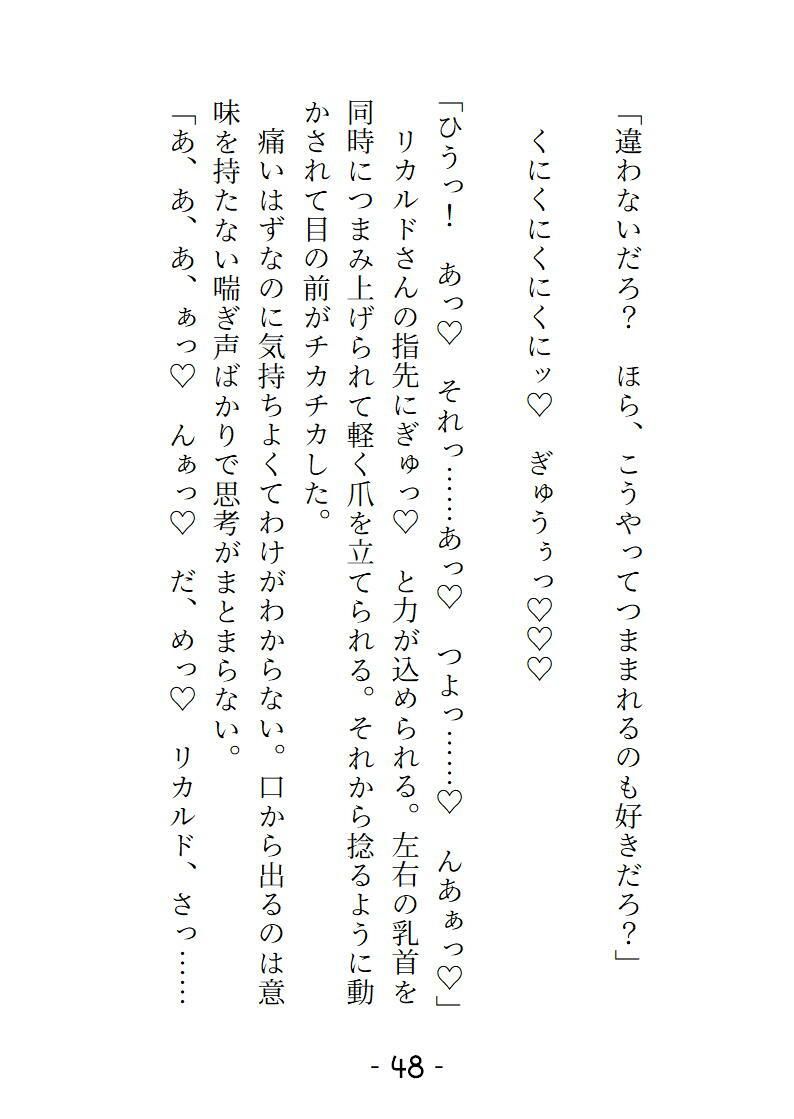 「違わないだろ？　ほら、こうやってつままれるのも好きだろ？」
くにくにくにくにッ♡　ぎゅうぅっ♡♡♡
「ひうっ！　あっ♡　それっ……あっ♡　つよっ……♡　んあぁっ♡」
リカルドさんの指先にぎゅっ♡　と力が込められる。左右の乳首を
同時につまみ上げられて軽く爪を立てられる。それから捻るように動
かされて目の前がチカチカした。
痛いはずなのに気持ちよくてわけがわからない。口から出るのは意
味を持たない喘ぎ声ばかりで思考がまとまらない。
「あ、あ、あ、ぁっ♡　んぁっ♡　だ、めっ♡　リカルド、さっ……
- 48 -